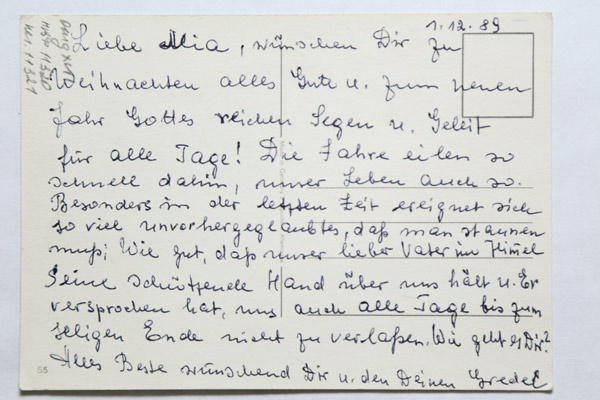 1.12.89
Liebe Mia, wünschen Dir zu
Weihnachten alles Gute u. zum neuen
Jahr Gottes reichen Segen u. Geleit
für alle Tage! Die Jahre eilen so
schnell dahin, unser Leben auch so.
Besonders in der letzten Zeit ereignet sich
so viel unvorhergeglaubtes, daß man staunen
muß; Wie gut, daß unser lieber Vater im Himel
seine schützende Hand über uns hält u. Er
versprochen hat, uns auch alle Tage bis zum
seligen Ende nicht zu verlaßen. Wie geht es Dir?
Alles Beste wünschend Dir u. den Deinen Gredel
55